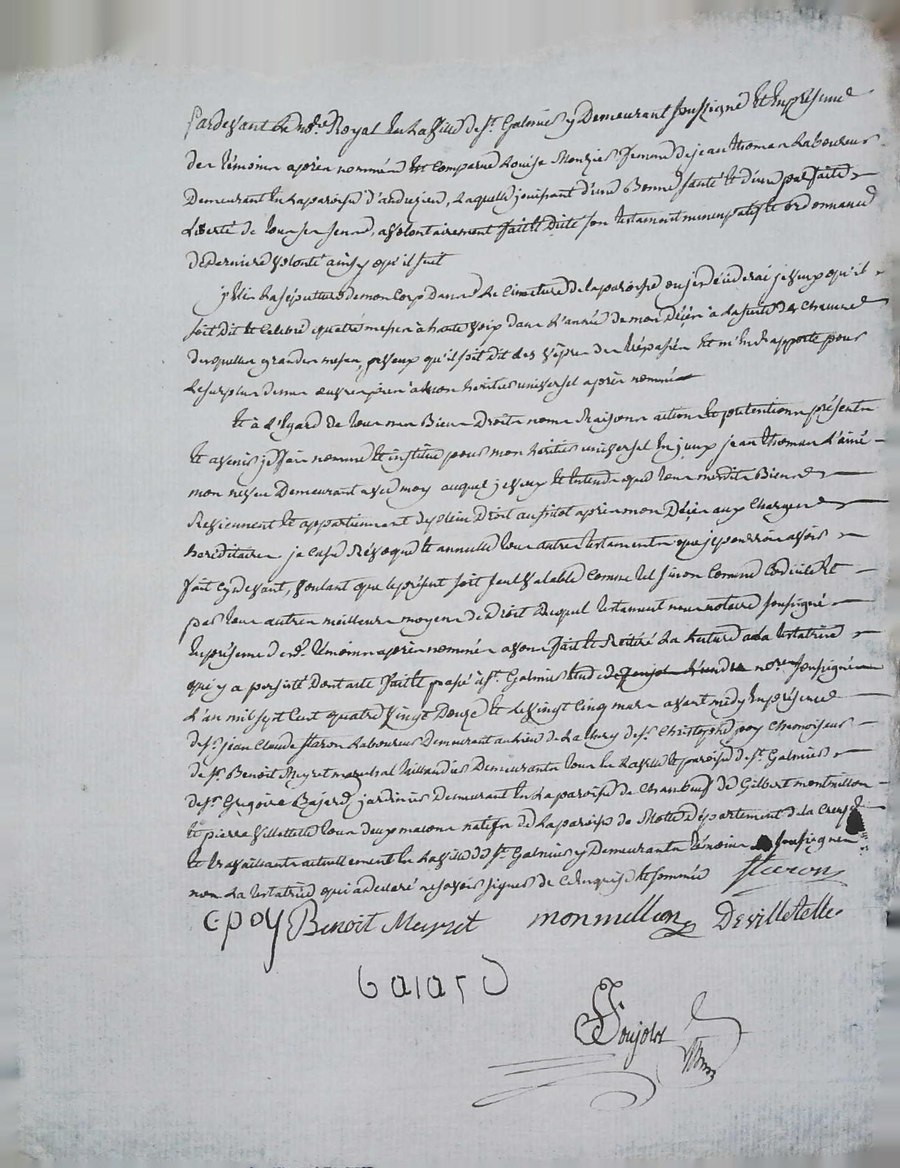 Pardevant le nre Royal en la ville de St Galmier y Demeurant soussigné et en présence
des témoins après nommés est comparue Louise femme de jean thomas Laboureur
Demeurant en la paroisse d'andrejieu, Laquelle jouissant d'une Bonne santé et d'une parfaite
Liberté de tous ses sens, a volontairement fait et dicté son testament nuncupatif et ordonnance
de Derniere volonté ainsy qu'il suit
j'Elis la sépulture de mon Corps dans le Cimetiere de la paroisse ou je décéderai je veux qu'il
soit dit et Celebré quatre messes à haute voix dans l'année de mon Décès à la suite de chacune
desquelles grandes messes, je veux qu'il soit dit des vêpres des trépassés Et m'En rapporte pour
le surplus de mes œuvres pies à mon héritier universel après nommé
Et à l'Egard de tous mes Biens Droits noms Raisons actions et prétentions présents
et avenir j'ai fait nommé et institué pour mon héritier universel En jceux jean thomas l'ainé
mon neveu Demeurant avec moy auquel je veux et Entends que tous mesdits Biens
Reviennent et appartiennent de plein Droit aussitot après mon Décès aux Charges
hereditaires, je Casse Révoque et annulle tous autres testaments que je pourrois avoir
fait cy devant, voulant que le présent soit seul valable Comme tel sinon Comme Codicile Et
par tous autres meilleurs moyens de Droit Duquel testament nous notaire soussigné
En présence desd. témoins après nommés avons fait et Réitéré La lecture à la testatrice
qui y a persisté Dont acte fait et passé à St Galmier Etude de nore soussigné
L'an mil sept Cent quatre vingt Douze Et le vingt Cinq mars avant midy En présence
de Sr jean Claude staron Laboureur Demeurant au lieu de de Sr Christophe poy
de Sr Benoit Meyret marechal taillandier Demeurants tous En la ville et paroisse de St Galmier
de Sr Grégoire Bajard jardinier Demeurant En la paroisse de Chambœuf de Gilbert montmillon
Et pierre villettelle tous deux maçons natifs de la paroisse de Département de la Creuse
Et travaillants actuellement En la ville de St Galmier y Demeurants témoins soussignés
non La testatrice qui a déclaré ne savoir signer de Ce enquise et sommée staron
C poy Benoit Meyret monmillon Devilletelle
baiard
Poujolx